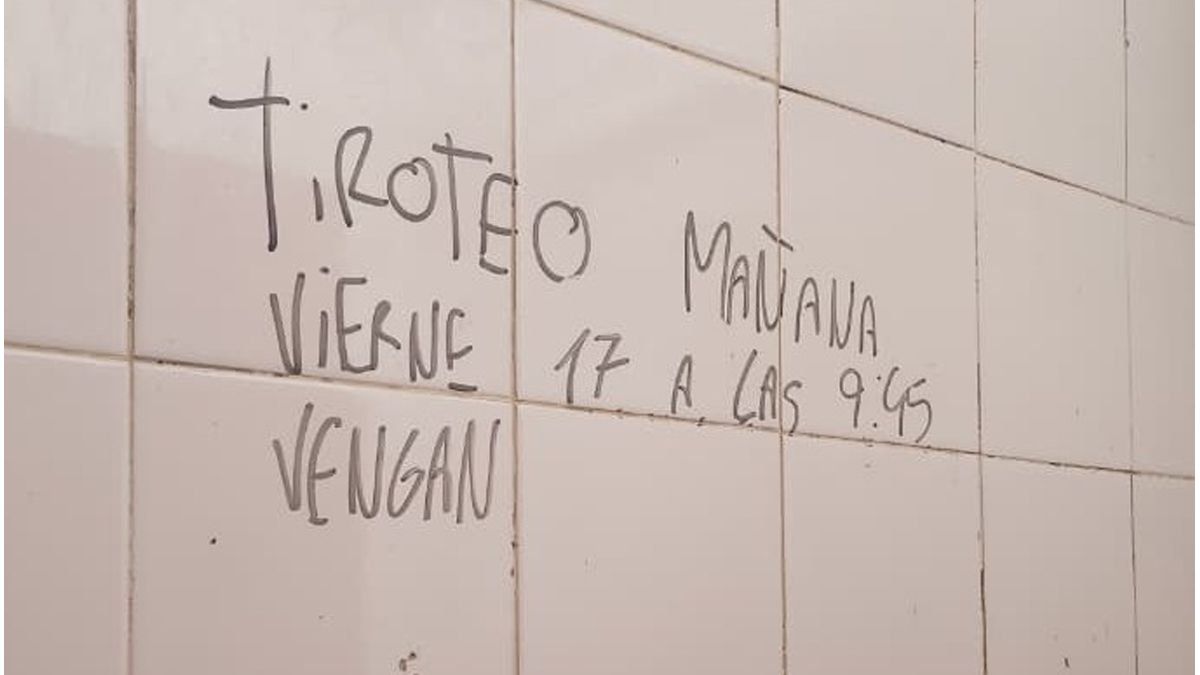 TiROTEO MAÑANA
ViERNE 17 A LAS 9:45
VENGAN